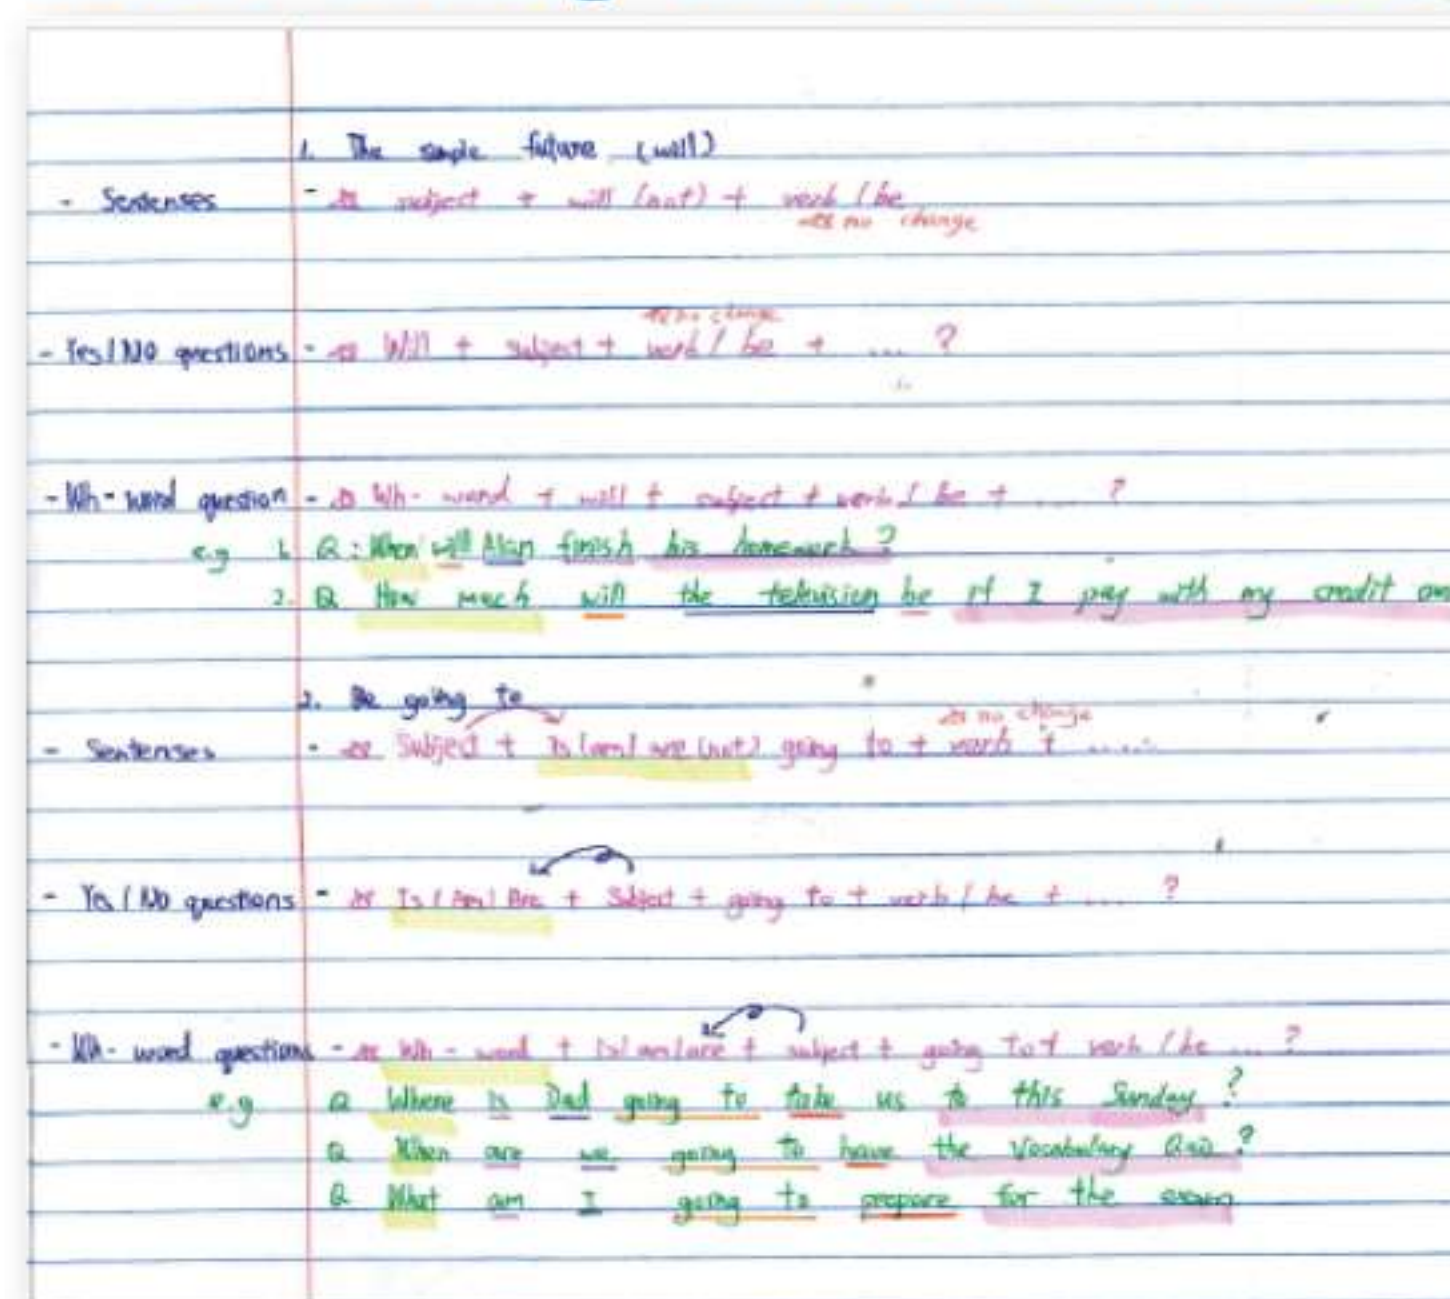 1. The simple future (will)
- Sentenses - ⇒ subject + will (not) + verb / be
⇒ no change
⇒ no change
- Yes / No questions - ⇒ Will + subject + verb / be + .... ?
- Wh - word question - ⇒ Wh - word + will + subject + verb / be + .... ?
e.g 1. Q : When will Alan finish his homework ?
2. Q How much will the television be if I pay with my credit
2. Be going to
⇒ no change
- Sentenses - ⇒ Subject + Is / am / are (not) going to + verb + ......
- Yes / No questions - ⇒ Is / Am / Are + Subject + going to + verb / be + .... ?
- Wh - word questions - ⇒ Wh - word + is / am / are + subject + going to + verb / be .... ?
e.g Q Where is Dad going to take us to this Sunday ?
Q When are we going to have the Vocabulary ?
Q What am I going to prepare for the exam